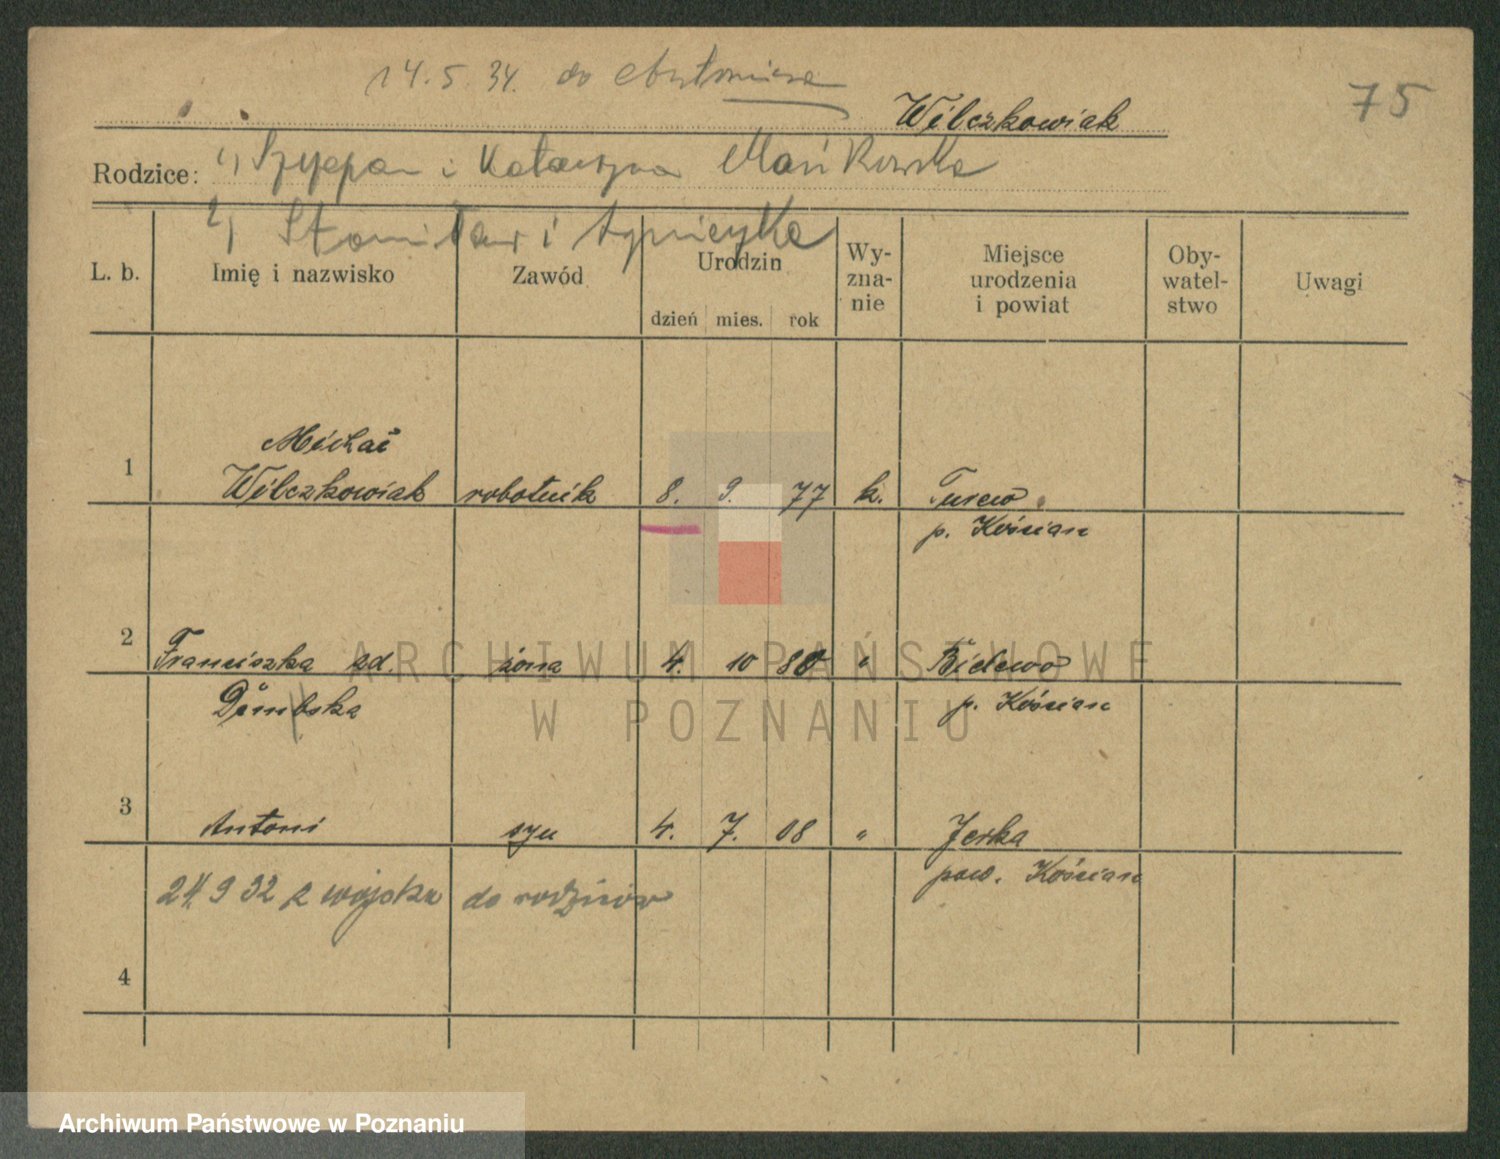 14. 5. 34. do
Wilczkowiak
75
Rodzice: 1) Szczepan i Katarzyna Mańkowska
2) Stanisław i Agnieszka
L. b. Imię i nazwisko Zawód Urodzin Wy-zna-nie Miejsce urodzenia i powiat Oby-watel-stwo Uwagi
dzień mies. rok
Michał
1 Wilczkowiak robotnik 8. 9. 77 k. Turew
p. Kościan
2 Franciszka zd. żona 4. 10 80 " Bielewo
Dембska p. Kościan
3 Antoni syn 4. 7. 08 " Jerka
pow. Kościan
24 9 32 z wojska do rodziców
4
ARCHIWUM PAŃSTWOWE
W POZNANIU
Archiwum Państwowe w Poznaniu